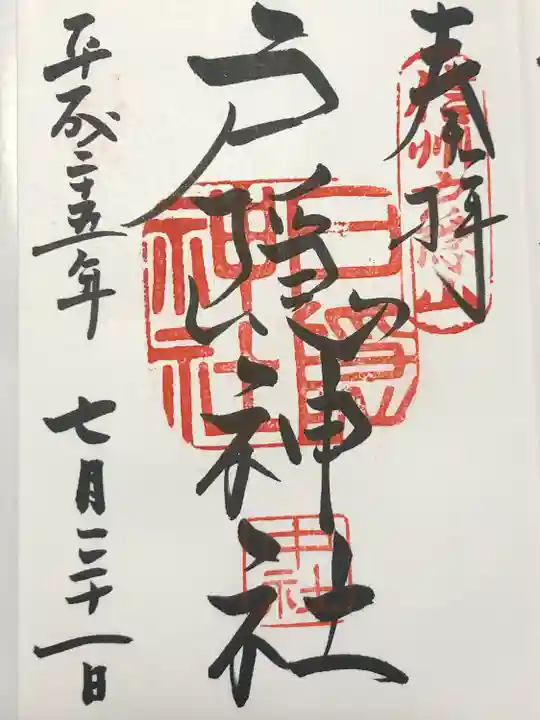 奉拝
信州戸隠山
戸隠神社
戸隠神社
中社
平成二十五年 七月二十一日